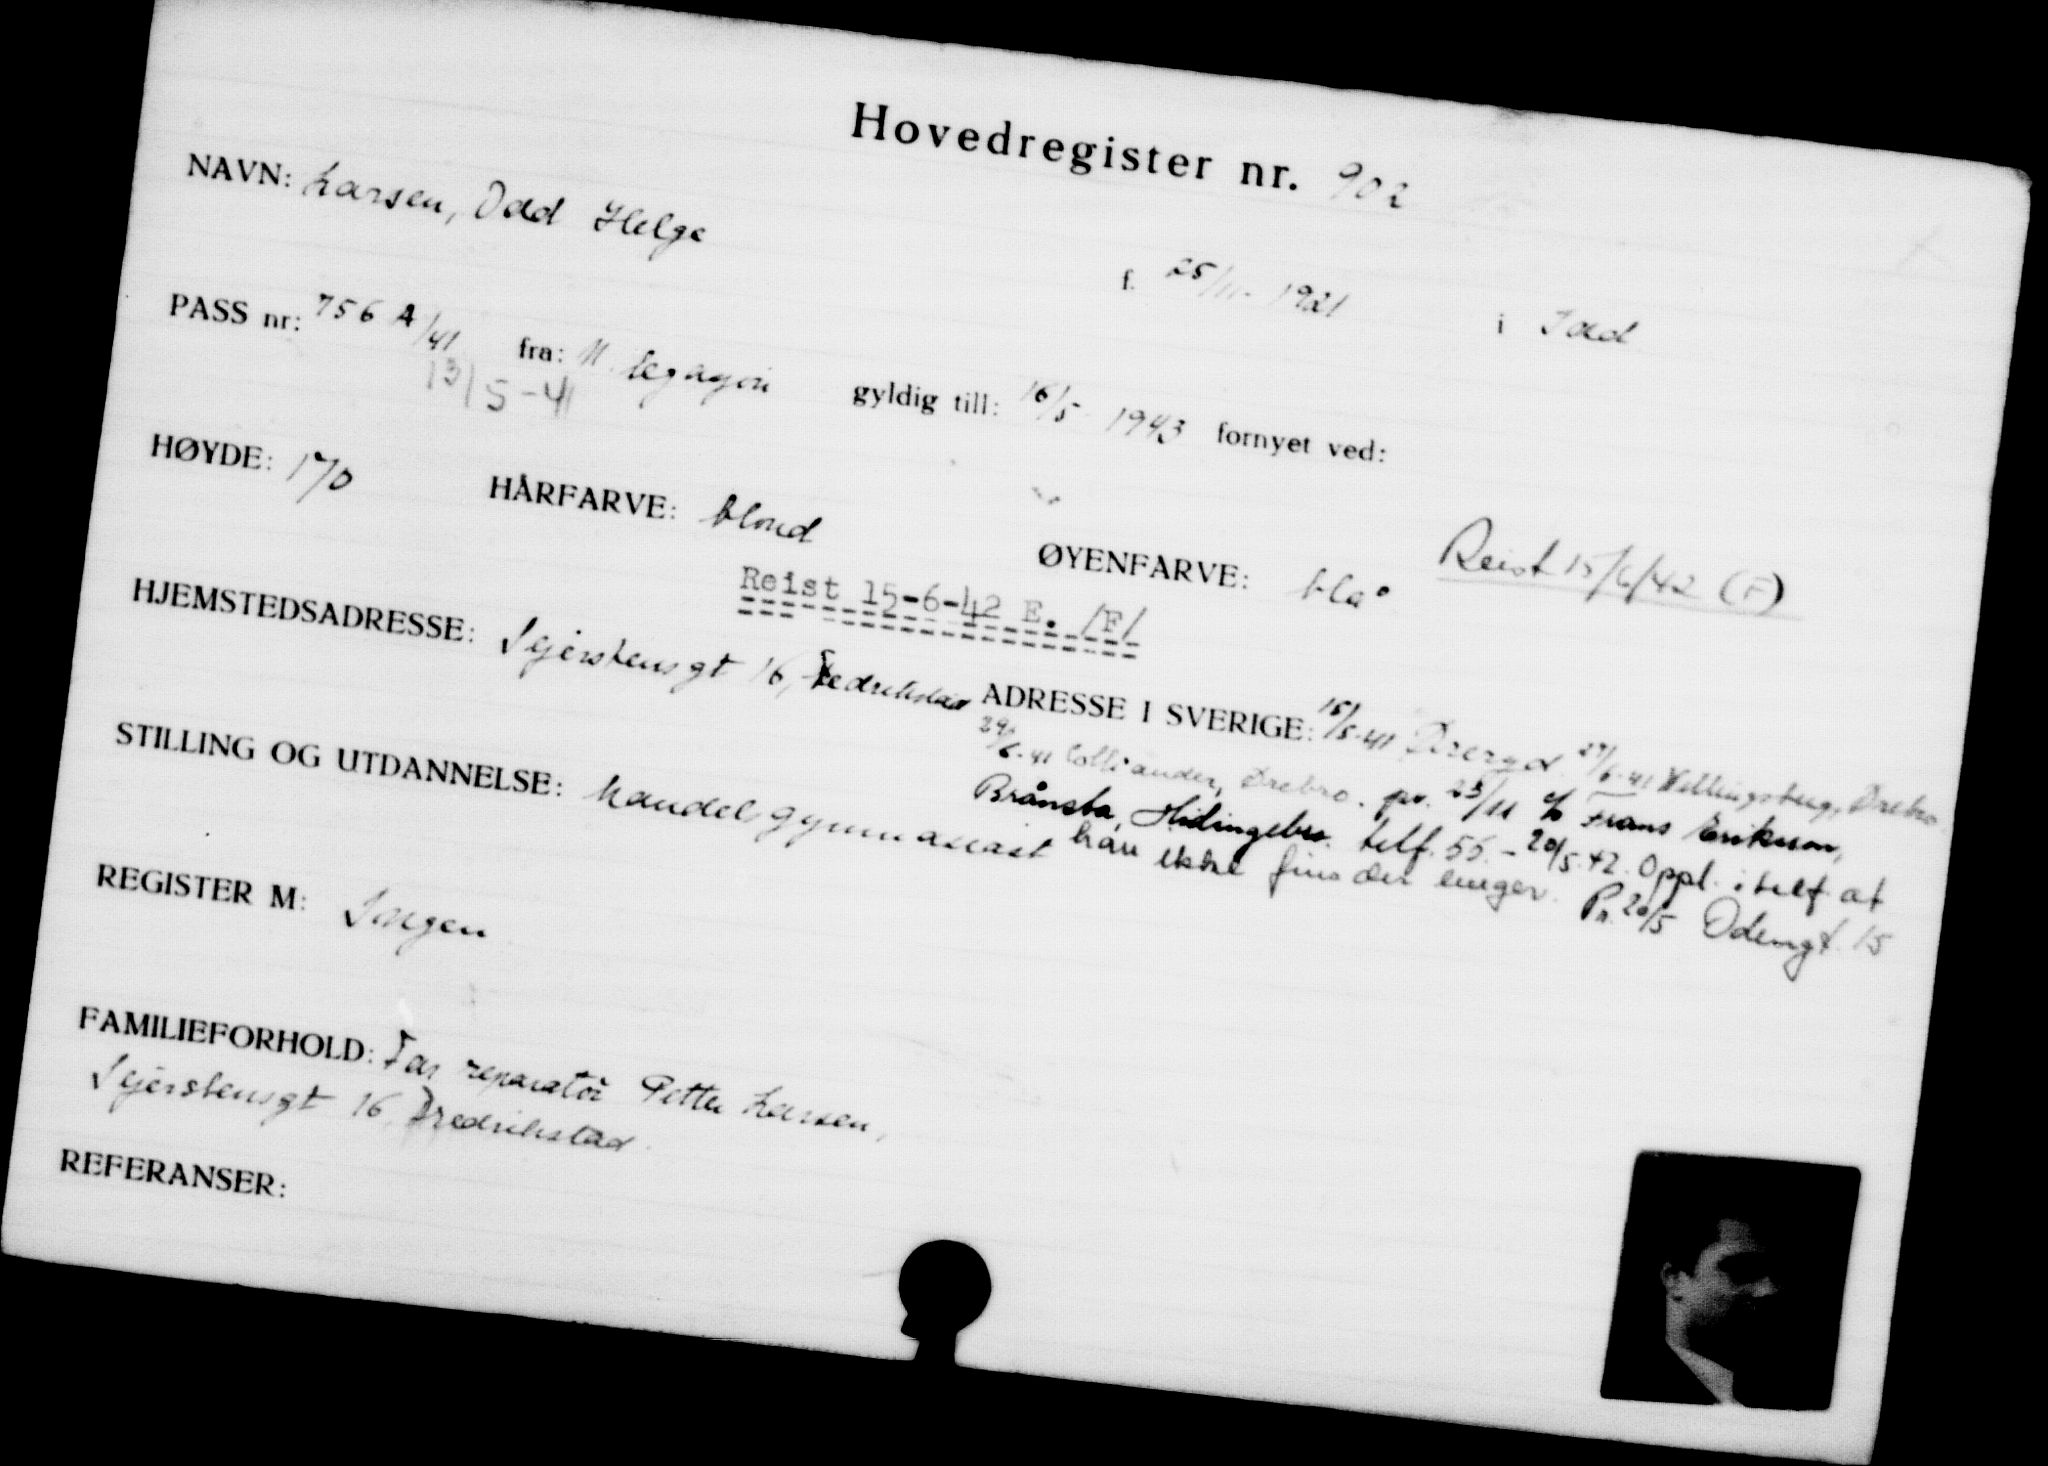 Hovedregister nr. 902
NAVN: Larsen, Odd Helge
f. 25/11-1921 i Idd
PASS nr: 756 A/41 fra: N. legasjon gyldig till: 16/5-1943 fornyet ved:
13/5-41
HØYDE: 170 HÅRFARVE: blond ØYENFARVE: blå
Reist 15/6/42 (F)
Reist 15-6-42 E. /F/
HJEMSTEDSADRESSE: Sejerstensgt 16, Fredrikstad
ADRESSE I SVERIGE: 15/5-41 Öreryd. 27/6-41 Örebro.
29/6-41 Örebro. pr. 23/11 c/o Frans Erikson,
Brånsta, Hidingebro. telf. 55. - 20/5-42. Oppl. i telf. at
han ikke fins der lenger. Pr. 20/5 Odengt. 15
STILLING OG UTDANNELSE: handelsgymnasiast
REGISTER M: Ingen
FAMILIEFORHOLD: Far reparatør Petter Larsen,
Sejerstensgt 16, Fredrikstad.
REFERANSER: